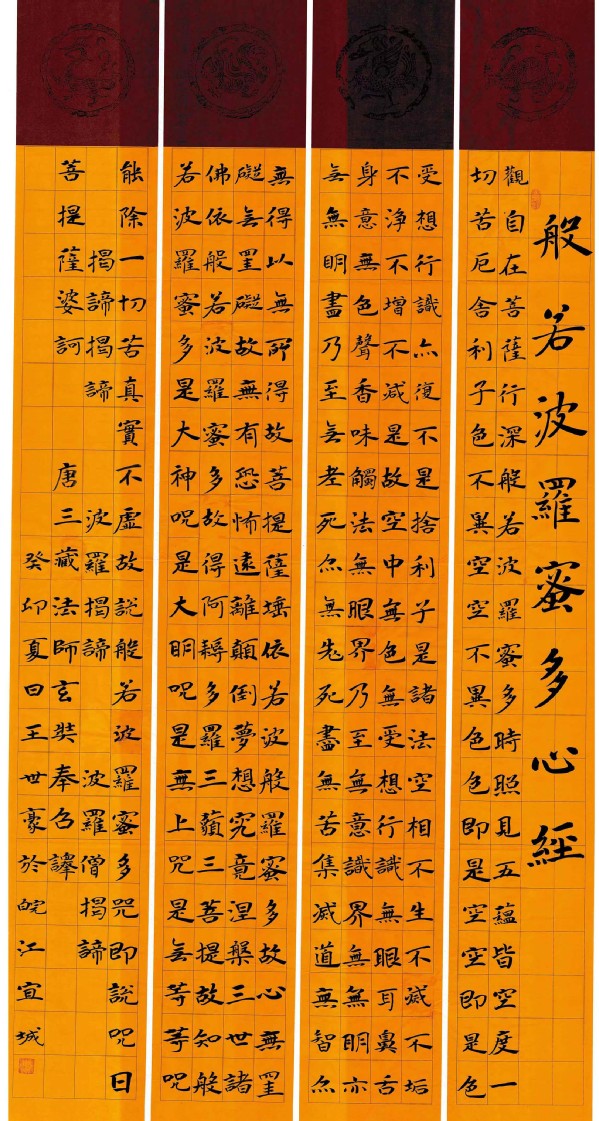 般若波羅蜜多心經
觀自在菩薩行深般若波羅蜜多時照見五蘊皆空度一
切苦厄舍利子色不異空空不異色色即是空空即是色
受想行識亦復不是捨利子是諸法空相不生不滅不垢
不淨不增不減是故空中無色無受想行識無眼耳鼻舌
身意無色聲香味觸法無眼界乃至無意識界無無明亦
无無明盡乃至无老死亦無老死盡無苦集滅道無智亦
無得以無所得故菩提薩埵依若波般羅蜜多故心無罣
礙无罣礙故無有恐怖遠離顛倒夢想究竟涅槃三世諸
佛依般若波羅蜜多故得阿耨多羅三藐三菩提故知般
若波羅蜜多是大神咒是大明咒是無上咒是无等等咒
能除一切苦真實不虛故說般若波羅蜜多咒即說咒曰
揭諦揭諦 波羅揭諦 波羅僧揭諦
菩提薩婆訶 唐三藏法師玄奘奉召譯
癸卯夏日王世豪於皖江宣城